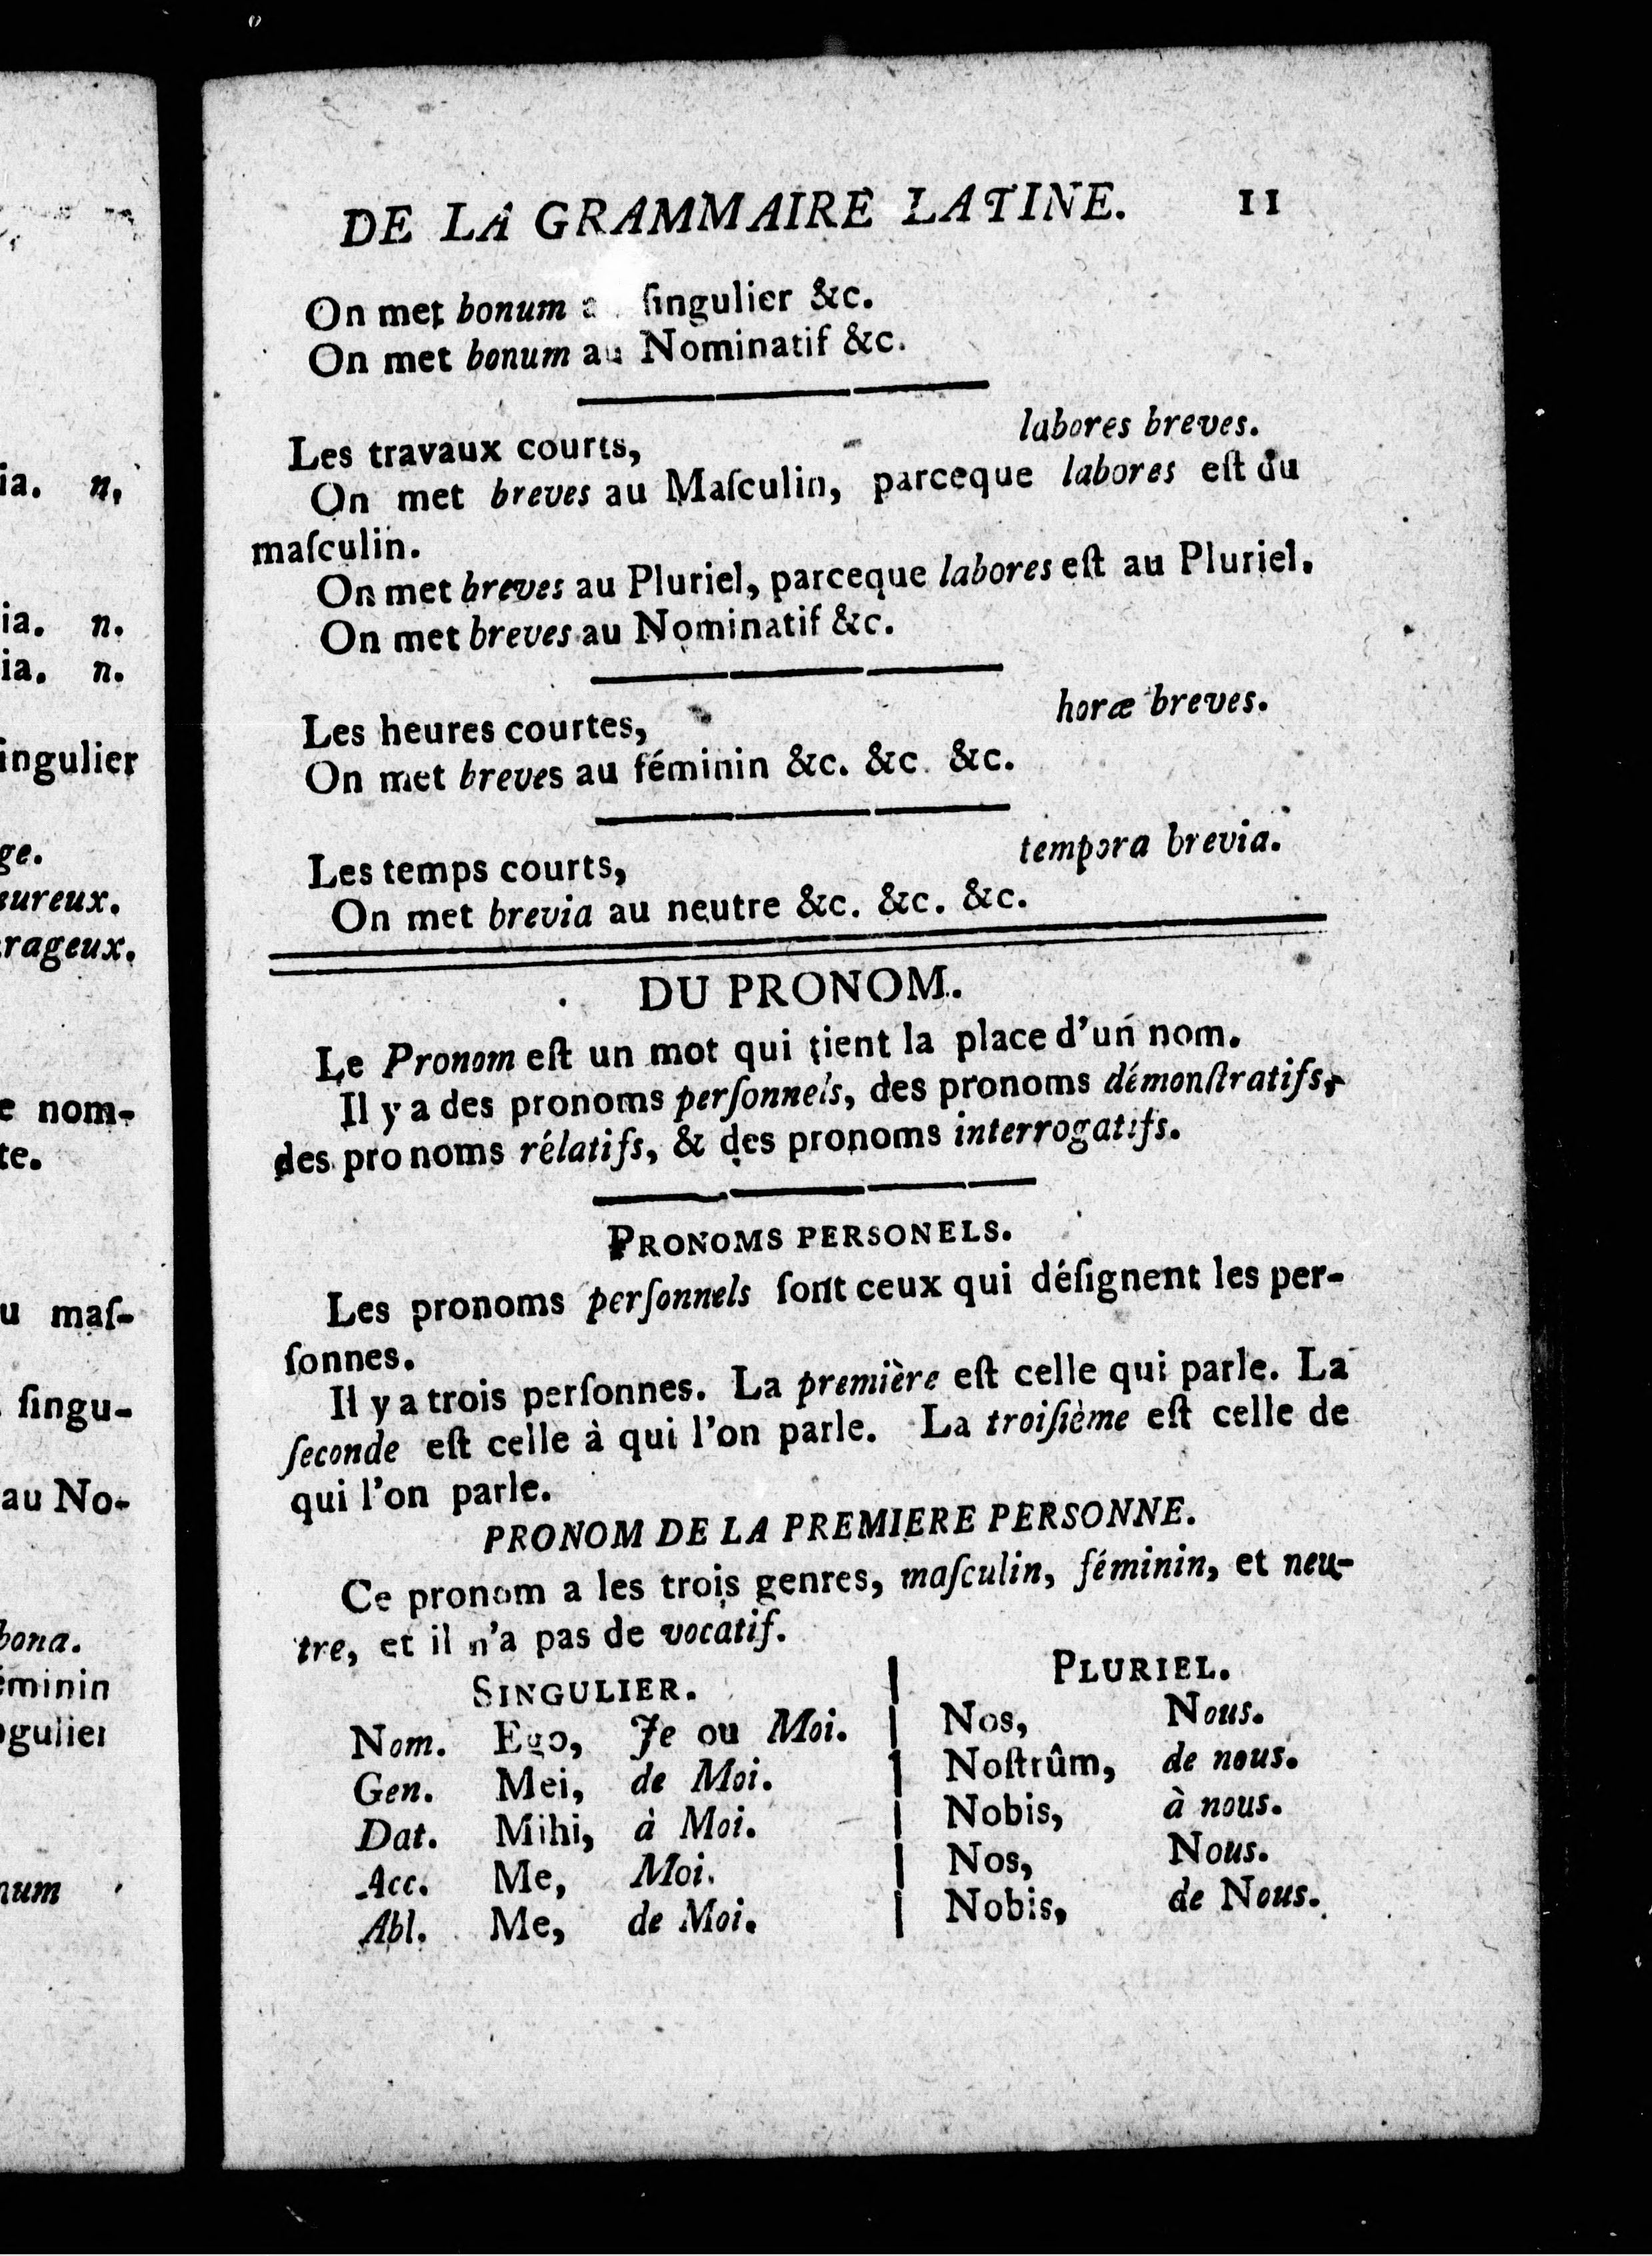 DE LA GRAMMAIRE LATINE. 11
On met bonum ſingulier &c.
On met bonum au Nominatif &c.
Les travaux courts, labores breves.
On met breves au Maſculin, parceque labores eſt du
maſculin.
On met breves au Pluriel, parceque labores eſt au Pluriel.
On met breves au Nominatif &c.
Les heures courtes, horæ breves.
On met breves au féminin &c. &c. &c.
Les temps courts, tempora brevia.
On met brevia au neutre &c. &c. &c.
DU PRONOM.
Le Pronom eſt un mot qui tient la place d'un nom.
Il y a des pronoms perſonnels, des pronoms démonſtratifs,
des pronoms rélatifs, & des pronoms interrogatifs.
PRONOMS PERSONELS.
Les pronoms perſonnels ſont ceux qui déſignent les per-
ſonnes.
Il y a trois perſonnes. La première eſt celle qui parle. La
ſeconde eſt celle à qui l'on parle. La troiſième eſt celle de
qui l'on parle.
PRONOM DE LA PREMIERE PERSONNE.
Ce pronom a les trois genres, maſculin, féminin, et neu-
tre, et il n'a pas de vocatif.
SINGULIER. PLURIEL.
Nom. Ego, Je ou Moi. Nos, Nous.
Gen. Mei, de Moi. Noſtrûm, de nous.
Dat. Mihi, à Moi. Nobis, à nous.
Acc. Me, Moi. Nos, Nous.
Abl. Me, de Moi. Nobis, de Nous.
ia. n,
ia. n.
ia. n.
ingulier
ge.
eureux.
rageux.
e nom-
te.
u maſ-
ſingu-
au No-
bona.
éminin
gulier
num